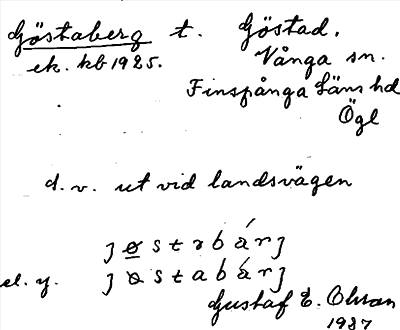 Göstaberg t. Göstad.
ek. kb 1925. Vånga sn.
Finspånga Läns hd
Ögl
d. v. ut vid landsvägen
ȷɵstabárȷ
el. y. ȷɵstabárȷ
Gustaf E. Olsson
1937